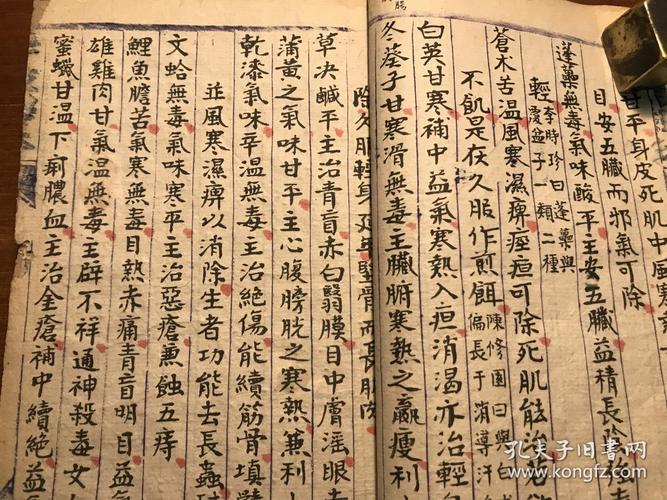 甘平身皮死肌中風寒
目安五臟而邪氣可除
蓬虆無毒氣味酸平主安五臟益精長
輕李時珍曰蓬虆與
覆盆子一類二種
蒼术苦温風寒濕痺痙疸可除死肌能
不飢是在久服作煎餌陳修園曰與白
偏長于消導汗
白英甘寒補中益氣寒熱入疸消渴亦治輕
冬葵子甘寒滑無毒主臟腑寒熱之羸瘦利
除久服輕身延年堅骨而長肌肉
草決鹹平主治青盲赤白翳膜目中膚滛眼
蒲黄之氣味甘平主心腹膀胱之寒熱兼利
乾漆氣味辛温無毒主治絕傷能續筋骨填髓
並風寒濕痺以消除生者功能去長蟲
文蛤無毒氣味寒平主治惡瘡兼蝕五痔
鯉魚膽苦氣寒無毒目熱赤痛青盲明目益氣
雄雞肉甘氣温無毒主辟不祥通神殺毒女
蜜蠟甘温下痢膿血主治金瘡補中續絕益
孔夫子旧书网
www.kongfz.com